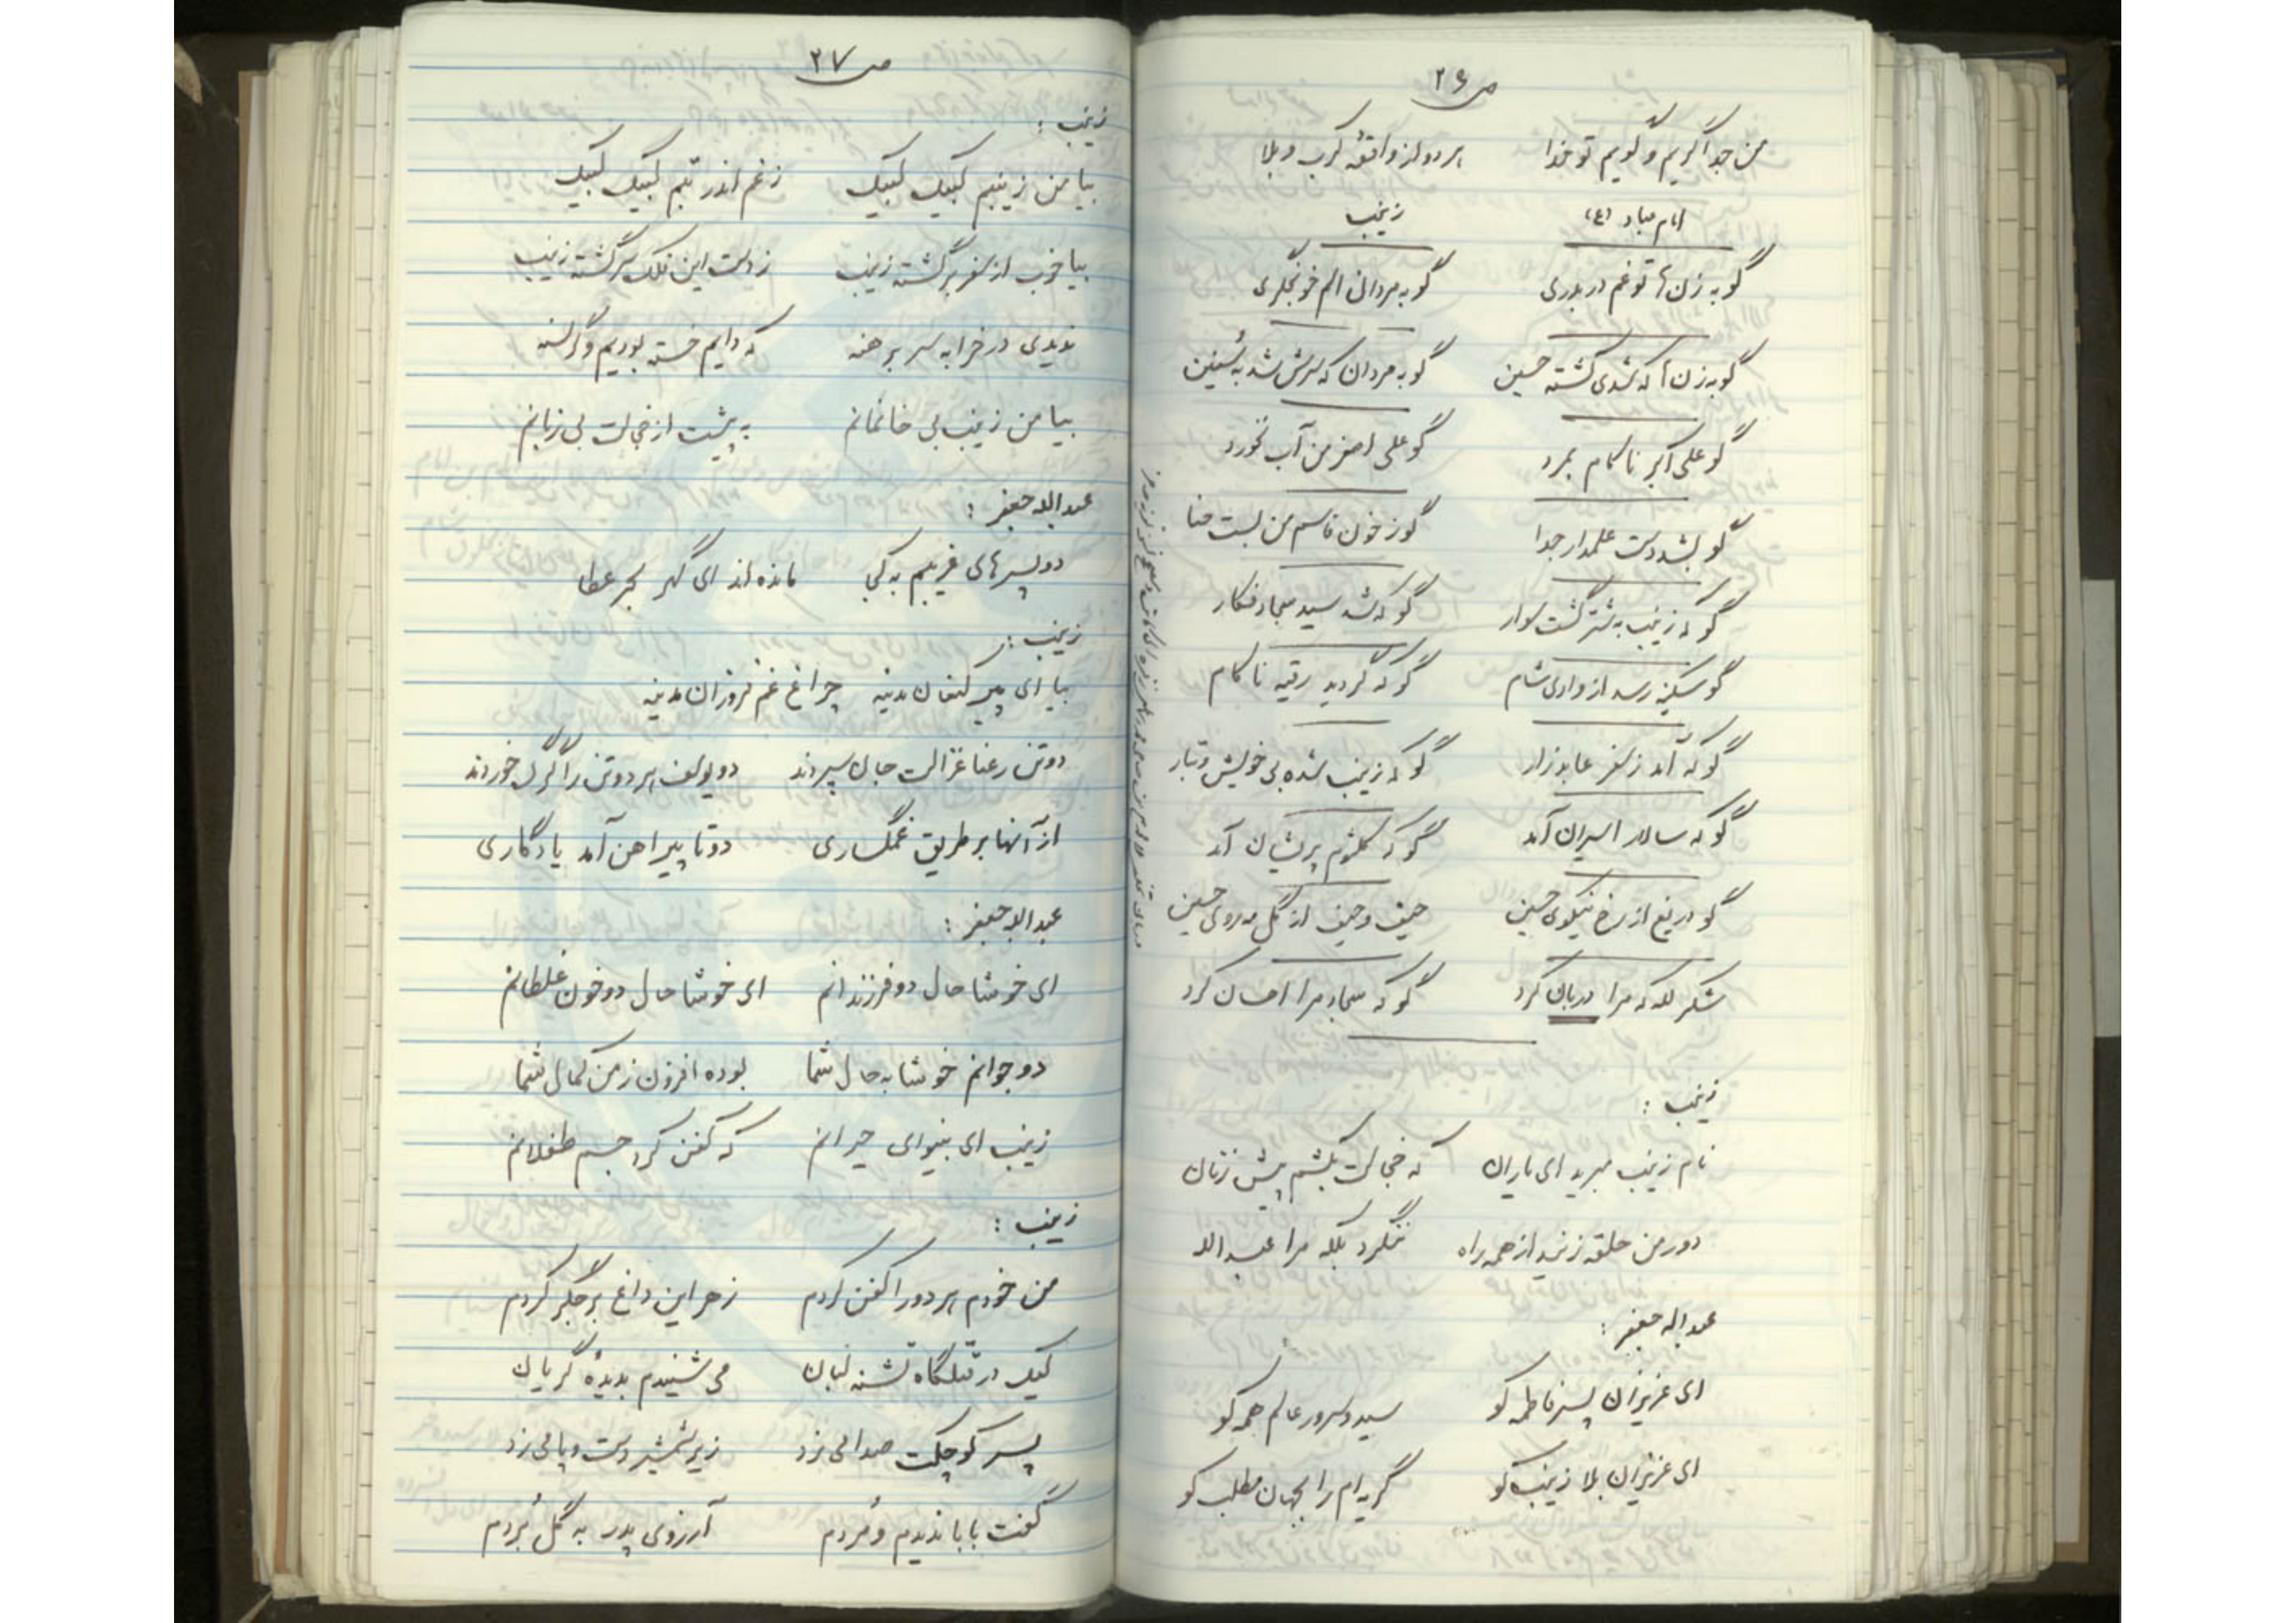 ص ۲۶
من جدا گریم و گویم تو جدا هر دو از واقعهٔ کرب و بلا
امام سجاد (ع) زینب
گو به زن‌ها تو غم دربدری گو به مردان الم خونجگری
گو به زن‌ها که شدی کشته حسین گو به مردان که سرش شد به سنین
گو علی اکبر ناکام بمرد گو علی اصغر من آب نخورد
گو بشد دست علمدار جدا گو ز خون قاسم من بست حنا
گو که زینب به شتر گشت سوار گو که شد سید سجاد فکار
گو سکینه رسد از وادی شام گو که گردید رقیه ناکام
گو که آمد ز سفر عابد زار گو که زینب شده بی خویش و تبار
گو که سالار اسیران آمد گو که کلثوم پریشان آمد
گو دریغ از رخ نیکوی حسین حیف و حیف از گل مه روی حسین
شکر لله که مرا دربان کرد گو که سجاد مرا احسان کرد
زینب :
نام زینب مبرید ای یاران که خجالت بکشم پیش زنان
دور من حلقه زنید از همه راه ننگرد بلکه مرا عبدالله
عبداله جعفر :
ای عزیزان پسر فاطمه کو سید و سرور عالم همه کو
ای عزیزان بلا زینب کو گریه ام را بجهان مطلب کو
ص ۲۷
زینب :
بیا من زینبم لبیک لبیک ز غم اندر تبم لبیک لبیک
بیا خوب از سفر برگشته زینب ز دست این فلک سرگشته زینب
ندیدی در خرابه سر برهنه که دایم خسته بودیم و گرسنه
بیا من زینب بی خانمانم به پشت از خجالت بی زبانم
عبدالله جعفر :
دو پسرهای غریبم به کجا مانده اند ای گهر بحر عطا
زینب :
بیا ای پیر کنعان مدینه چراغ غم فروزان مدینه
دو تن رعنا غزالت جان سپردند دو یوسف هر دو تن را گرگ خوردند
از آنها بر طریق غمگساری دو تا پیراهن آمد یادگاری
عبدالله جعفر :
ای خوشا حال دو فرزندانم ای خوشا حال دو خون غلطانم
دو جوانم خوشا به حال شما بوده افزون ز من کمال شما
زینب ای بینوای حیرانم که کفن کرد جسم طفلانم
زینب :
من خودم هر دو را کفن کردم زهر این داغ بر جگر کردم
لیک در قتلگاه تشنه لبان می شنیدم بدیدهٔ گریان
پسر کوچکت صدا می زد زیر شمشیر دست و پا می زد
گفت بابا ندیدم و مُردم آرزوی پدر به گل بُردم